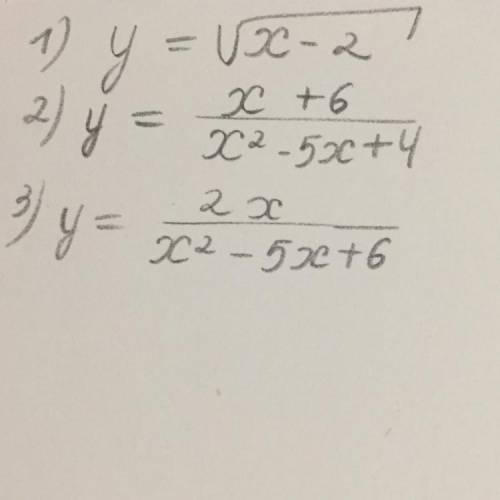 1) y = √(x - 2)
2) y = (x + 6)/(x² - 5x + 4)
3) y = (2x)/(x² - 5x + 6)